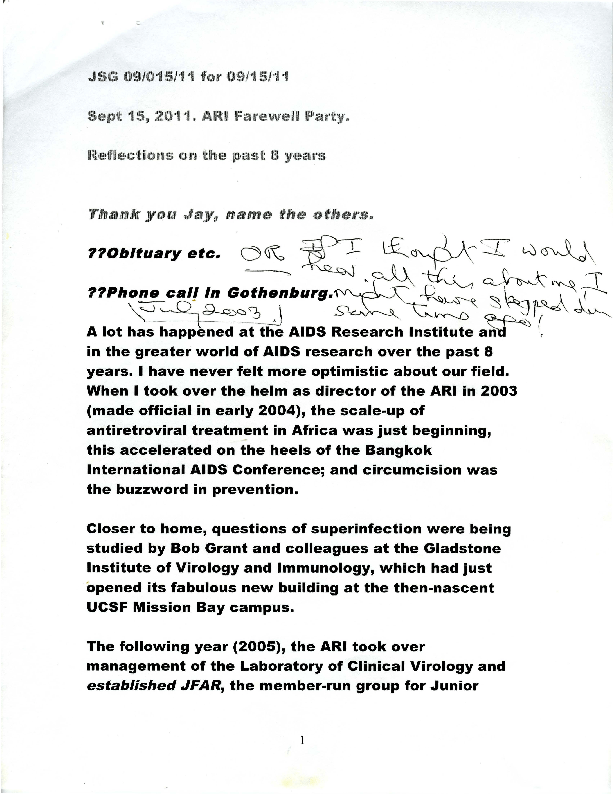 JSG 09/015/11 for 09/15/11
Sept 15, 2011. ARI Farewell Party.
Reflections on the past 8 years
Thank you Jay, name the others.
??Obituary etc. OR If I thought I would
hear all this about me I
??Phone call in Gothenburg. might have stepped down
July 2003 some time ago!
A lot has happened at the AIDS Research Institute and
in the greater world of AIDS research over the past 8
years. I have never felt more optimistic about our field.
When I took over the helm as director of the ARI in 2003
(made official in early 2004), the scale-up of
antiretroviral treatment in Africa was just beginning,
this accelerated on the heels of the Bangkok
International AIDS Conference; and circumcision was
the buzzword in prevention.
Closer to home, questions of superinfection were being
studied by Bob Grant and colleagues at the Gladstone
Institute of Virology and Immunology, which had just
opened its fabulous new building at the then-nascent
UCSF Mission Bay campus.
The following year (2005), the ARI took over
management of the Laboratory of Clinical Virology and
established JFAR, the member-run group for Junior
1